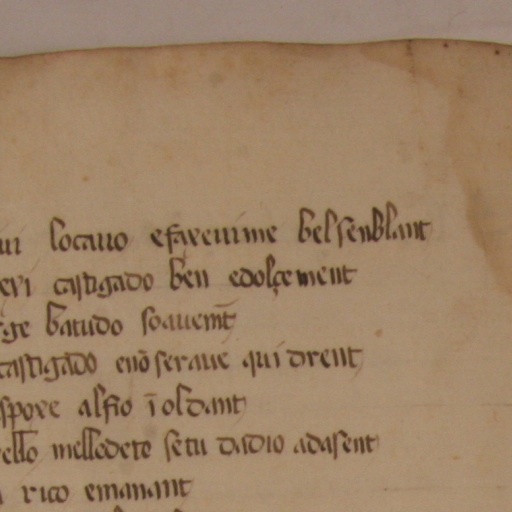 ui locauo efareuime belsenblant
eri castigado ben edolçement
ge batudo soauemt̄
castigado enō seraue qui drent
spore alfio ī oldant
ello mellodete se tu dadio adasent
rico emanant